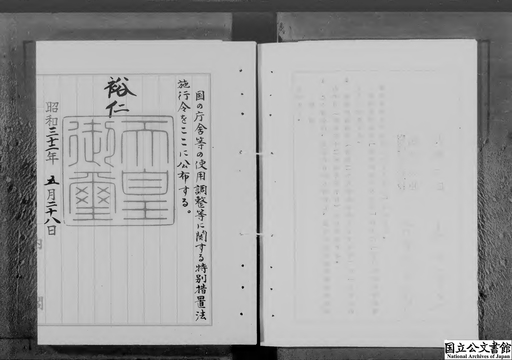 国の庁舎等の使用調整等に関する特別措置法
施行令をここに公布する。
裕仁
天皇
御璽
昭和三十二年 五月二十八日
国立公文書館
National Archives of Japan